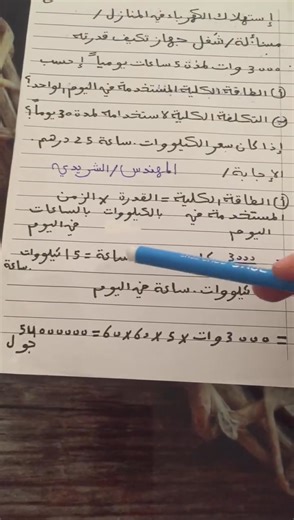 إستهلاك الكهرباء في المنازل/
مسألة/ شُغل جهاز تكيف قدرته
3000 وات لمدة 5 ساعات يومياً إحسب
① الطاقة الكلية المستخدمة في اليوم الواحد؟
② التكلفة الكلية لاستخدامه لمدة 30 يوماً؟
إذا كان سعر الكيلووات.ساعة 25 درهم.
الإجابة/ المهندس/الشريدي
① الطاقة الكلية = القدرة × الزمن
المستخدمة في بالكيلووات بالساعات
اليوم في اليوم
3000 ساعة = 15 كيلووات
ساعة.
كيلووات.ساعة في اليوم
= 3000 وات × 5 × 60 × 60 = 54000000
جول